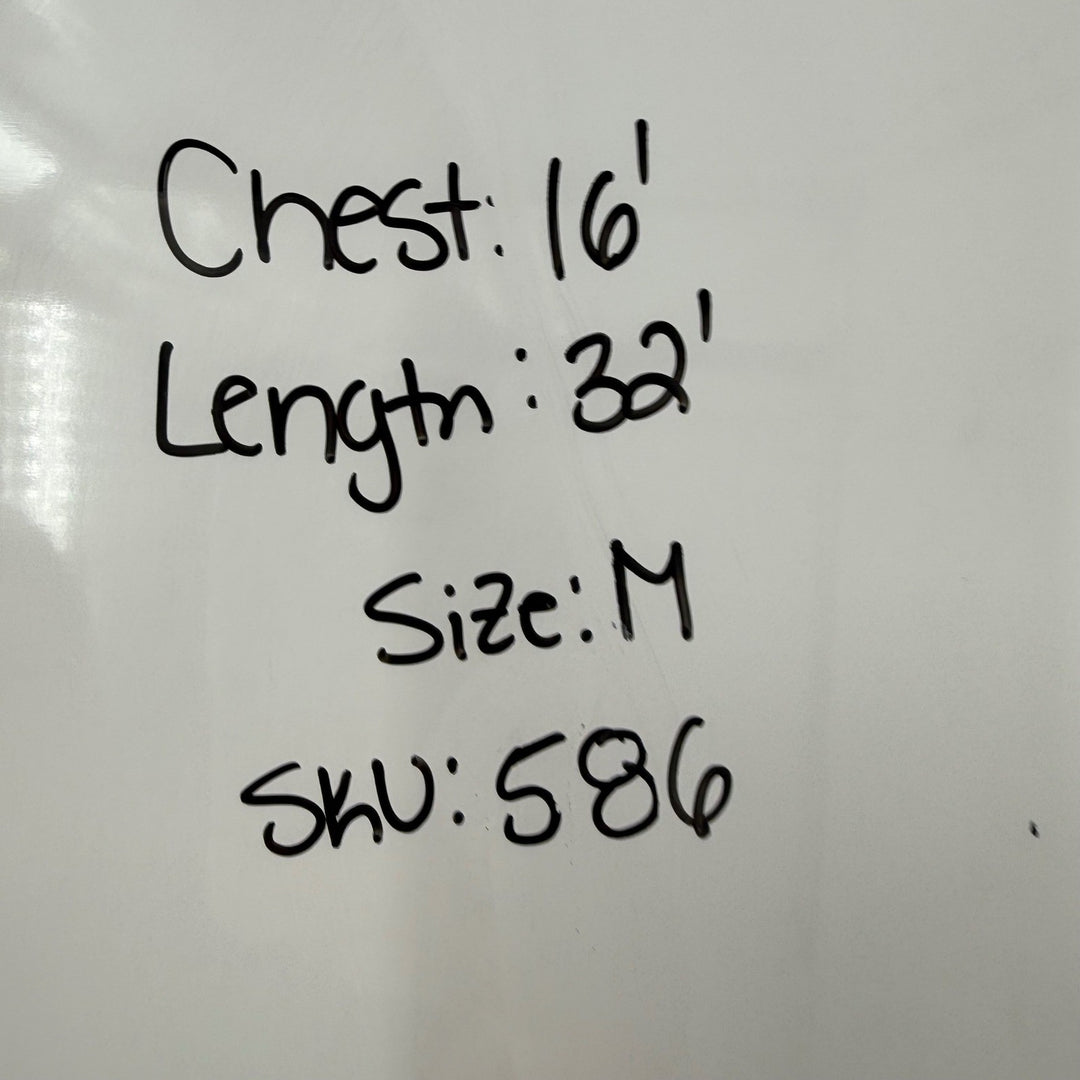 Chest: 16'
Length: 32'
Size: M
SKU: 586